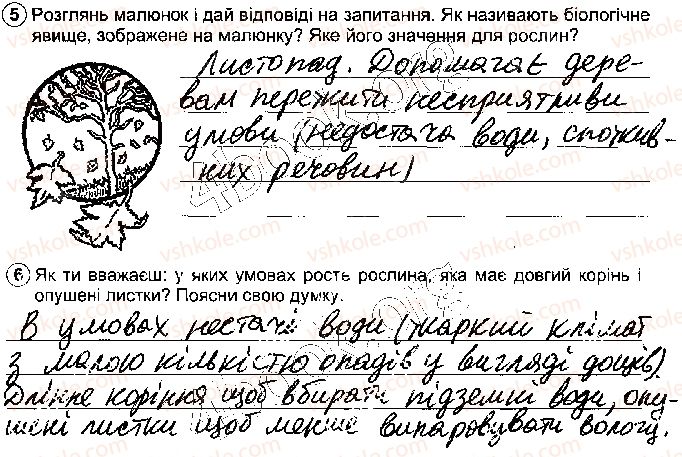 5 Розглянь малюнок і дай відповіді на запитання. Як називають біологічне
явище, зображене на малюнку? Яке його значення для рослин?
Листопад. Допомагає дере-
вам пережити несприятриви
умови (недостача води, спожив-
них речовин)
6 Як ти вважаєш: у яких умовах рость рослина, яка має довгий корінь і
опушені листки? Поясни свою думку.
В умовах нестачі води (жаркий клімат
з малою кількістю опадів у вигляді дощів)
Длінне коріння щоб вбирати підземні води, опу-
шені листки щоб менше випаровувати вологу.
4book.org
4book.org
vshkole.com